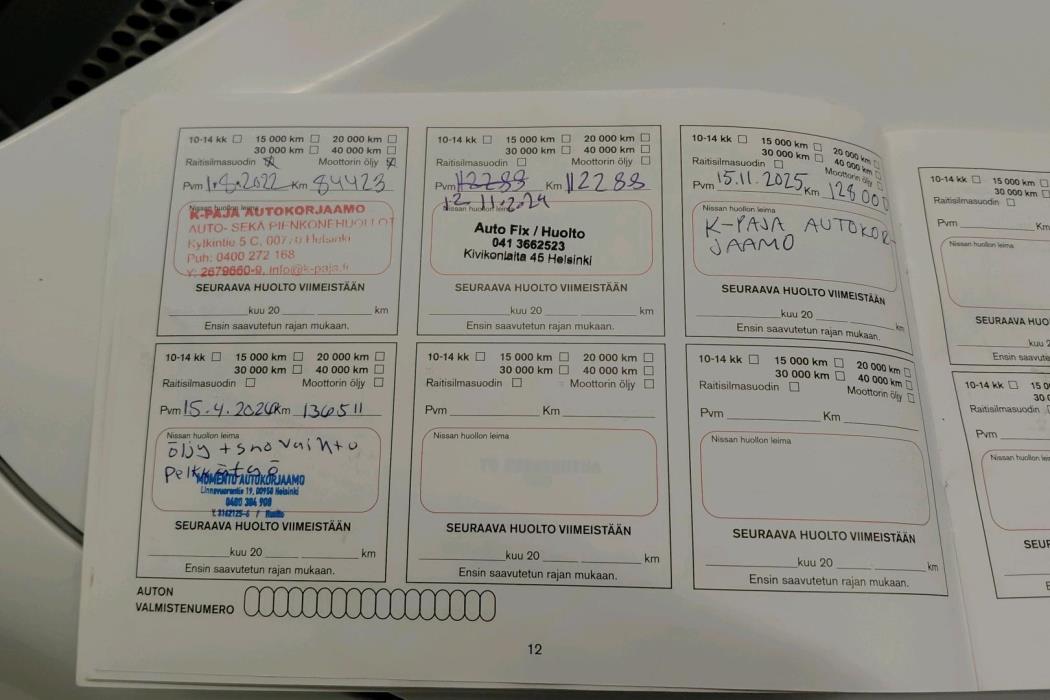 10-14 kk 15 000 km 20 000 km
30 000 km 40 000 km
Raitisilmasuodin Moottorin öljy
Pvm 1.8.2022 Km 84423
Nissan huollon leima
K-PAJA AUTOKORJAAMO
AUTO- SEKÄ PIENKONEHUOLLOT
Kylkintie 5 C, Helsinki
Puh: 0400 272 168
Y: 2679660-9, info@k-paja.fi
SEURAAVA HUOLTO VIIMEISTÄÄN
kuu 20 km
Ensin saavutetun rajan mukaan.
10-14 kk 15 000 km 20 000 km
30 000 km 40 000 km
Raitisilmasuodin Moottorin öljy
Pvm 112288 Km 112288
12.11.2024
Nissan huollon leima
Auto Fix / Huolto
041 3662523
Kivikonlaita 45 Helsinki
SEURAAVA HUOLTO VIIMEISTÄÄN
kuu 20 km
Ensin saavutetun rajan mukaan.
10-14 kk 15 000 km 20 000 km
30 000 km 40 000 km
Raitisilmasuodin Moottorin öljy
Pvm 15.11.2025 Km 128000
Nissan huollon leima
K-PAJA AUTOKOR-
JAAMO
SEURAAVA HUOLTO VIIMEISTÄÄN
kuu 20 km
Ensin saavutetun rajan mukaan.
10-14 kk 15 000 km
30 000 km
Raitisilmasuodin
Pvm Km
Nissan huollon leima
SEURAAVA HUO
kuu 2
Ensin saavute
10-14 kk 15 000 km 20 000 km
30 000 km 40 000 km
Raitisilmasuodin Moottorin öljy
Pvm 15.4.2026 Km 136511
Nissan huollon leima
öljy + suo vaihto
pelkkä työ
MOMENTO AUTOKORJAAMO
Linnavuorentie 19, 00950 Helsinki
0400 384 908
Y. 3162125-6 / Huolto
SEURAAVA HUOLTO VIIMEISTÄÄN
kuu 20 km
Ensin saavutetun rajan mukaan.
10-14 kk 15 000 km 20 000 km
30 000 km 40 000 km
Raitisilmasuodin Moottorin öljy
Pvm Km
Nissan huollon leima
SEURAAVA HUOLTO VIIMEISTÄÄN
kuu 20 km
Ensin saavutetun rajan mukaan.
10-14 kk 15 000 km 20 000 km
30 000 km 40 000 km
Raitisilmasuodin Moottorin öljy
Pvm Km
Nissan huollon leima
SEURAAVA HUOLTO VIIMEISTÄÄN
kuu 20 km
Ensin saavutetun rajan mukaan.
10-14 kk 15 0
30 0
Raitisilmasuodin
Pvm
Nissan huollon leim
SEUF
E
AUTON
VALMISTENUMERO
12